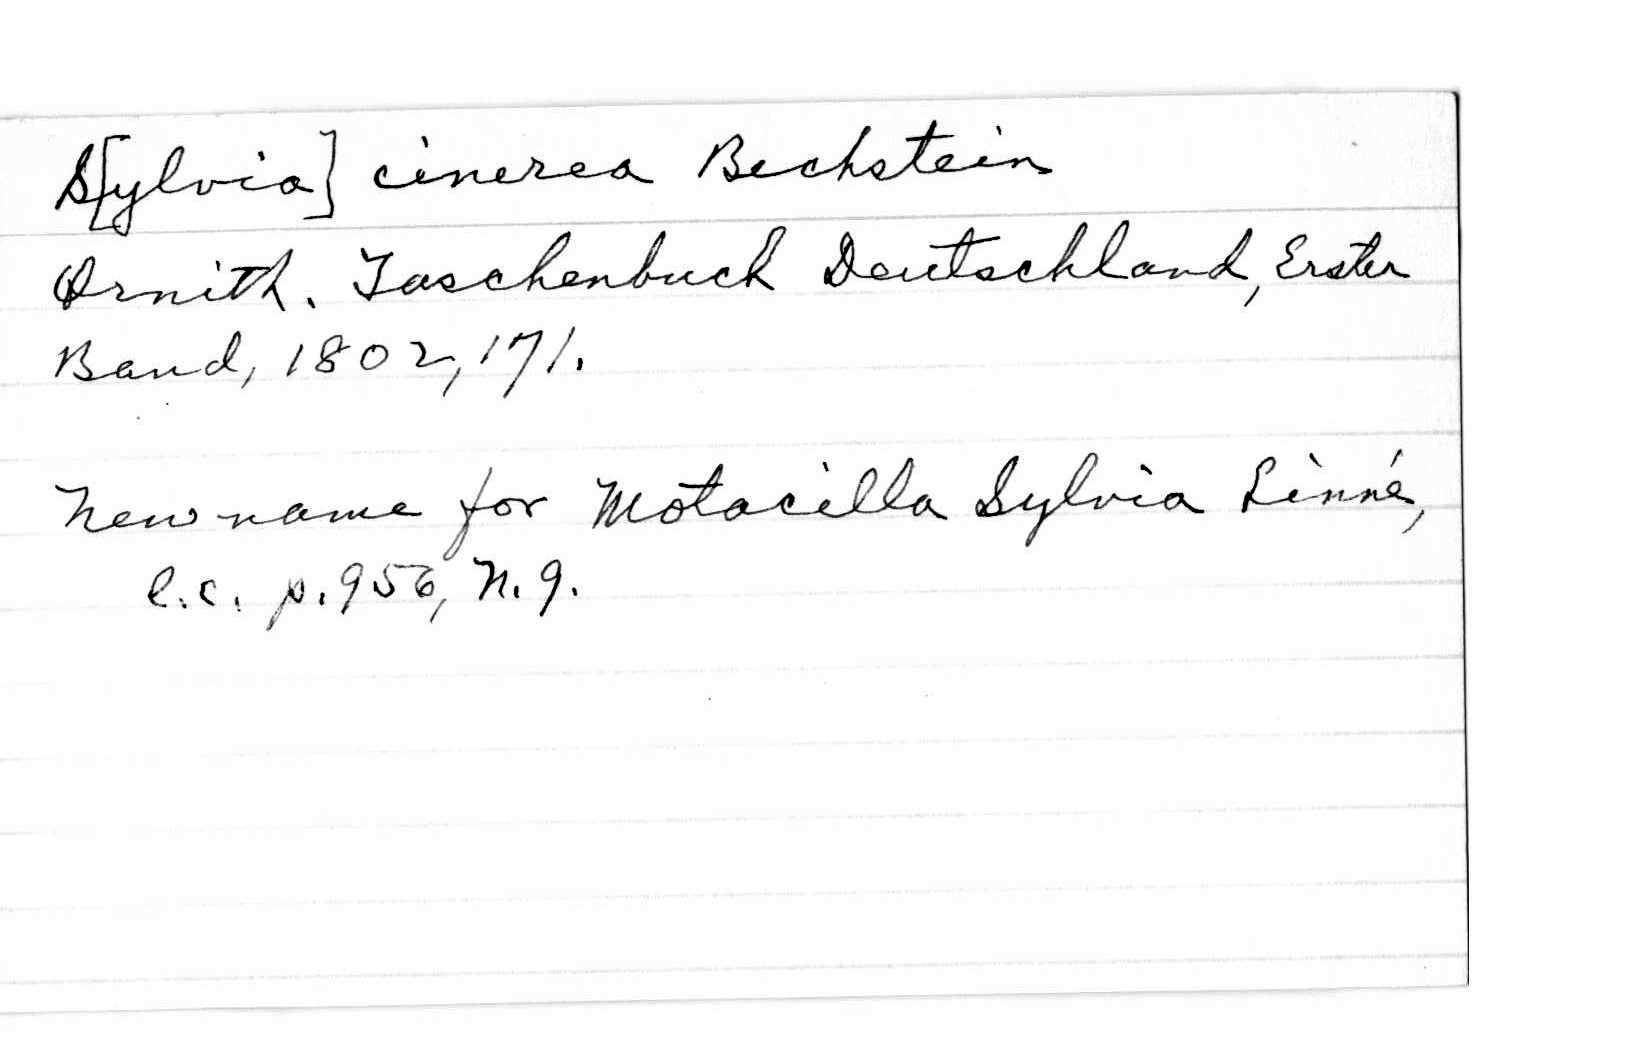 S[ylvia] cinerea Bechstein
Ornith. Taschenbuch Deutschland, Erster
Band, 1802, 171.
New name for Motacilla Sylvia Linné,
l.c. p. 956, N. 9.